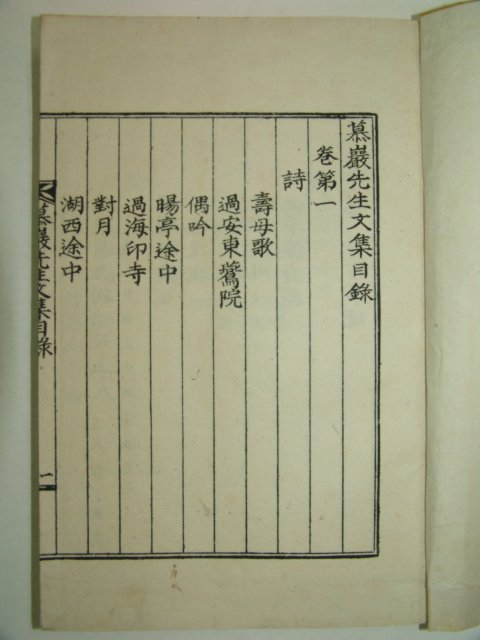 慕巖先生文集目錄
卷第一
詩
壽母歌
過安東鶖院
偶吟
暘亭途中
過海印寺
對月
湖西途中
慕巖先生文集目錄
一